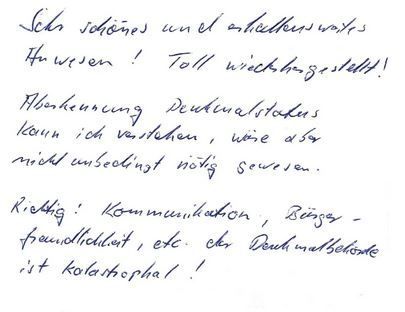 Sehr schönes und erhaltenswertes
Anwesen! Toll wiederhergestellt!
Aberkennung Denkmalstatus
kann ich verstehen, wäre aber
nicht unbedingt nötig gewesen.
Richtig! Kommunikation, Bürger-
freundlichkeit, etc. der Denkmalbehörde
ist katastrophal!